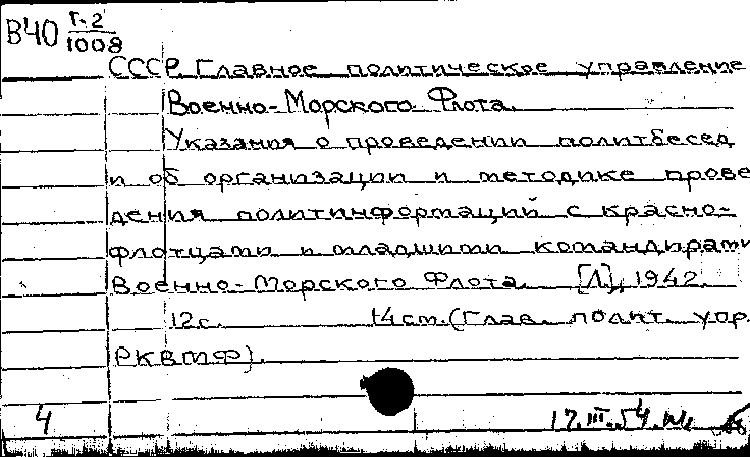 В40 Г-2
1008
СССР. Главное политическое управление
Военно-Морского Флота.
Указания о проведении политбесед
и об организации и методике прове
дения политинформаций с красно-
флотцами и младшими командирами
Военно-Морского Флота. [Л], 1942.
12с. 14см. (Глав. полит. упр.
РКВМФ).
4 17.III.54.